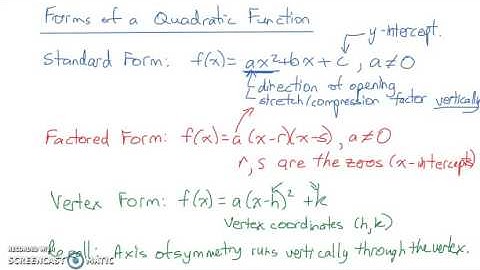 Forms of a Quadratic Function
y-intercept.
Standard Form: f(x) = ax²+bx+c, a≠0
direction of opening
stretch/compression factor vertically
Factored Form: f(x)=a(x-r)(x-s), a≠0
r, s are the zeros (x-intercepts)
Vertex Form: f(x) = a(x-h)² + k
Vertex coordinates (h,k)
Recall: Axis of symmetry runs vertically through the vertex.
RECORDED WITH
SCREENCAST MATIC